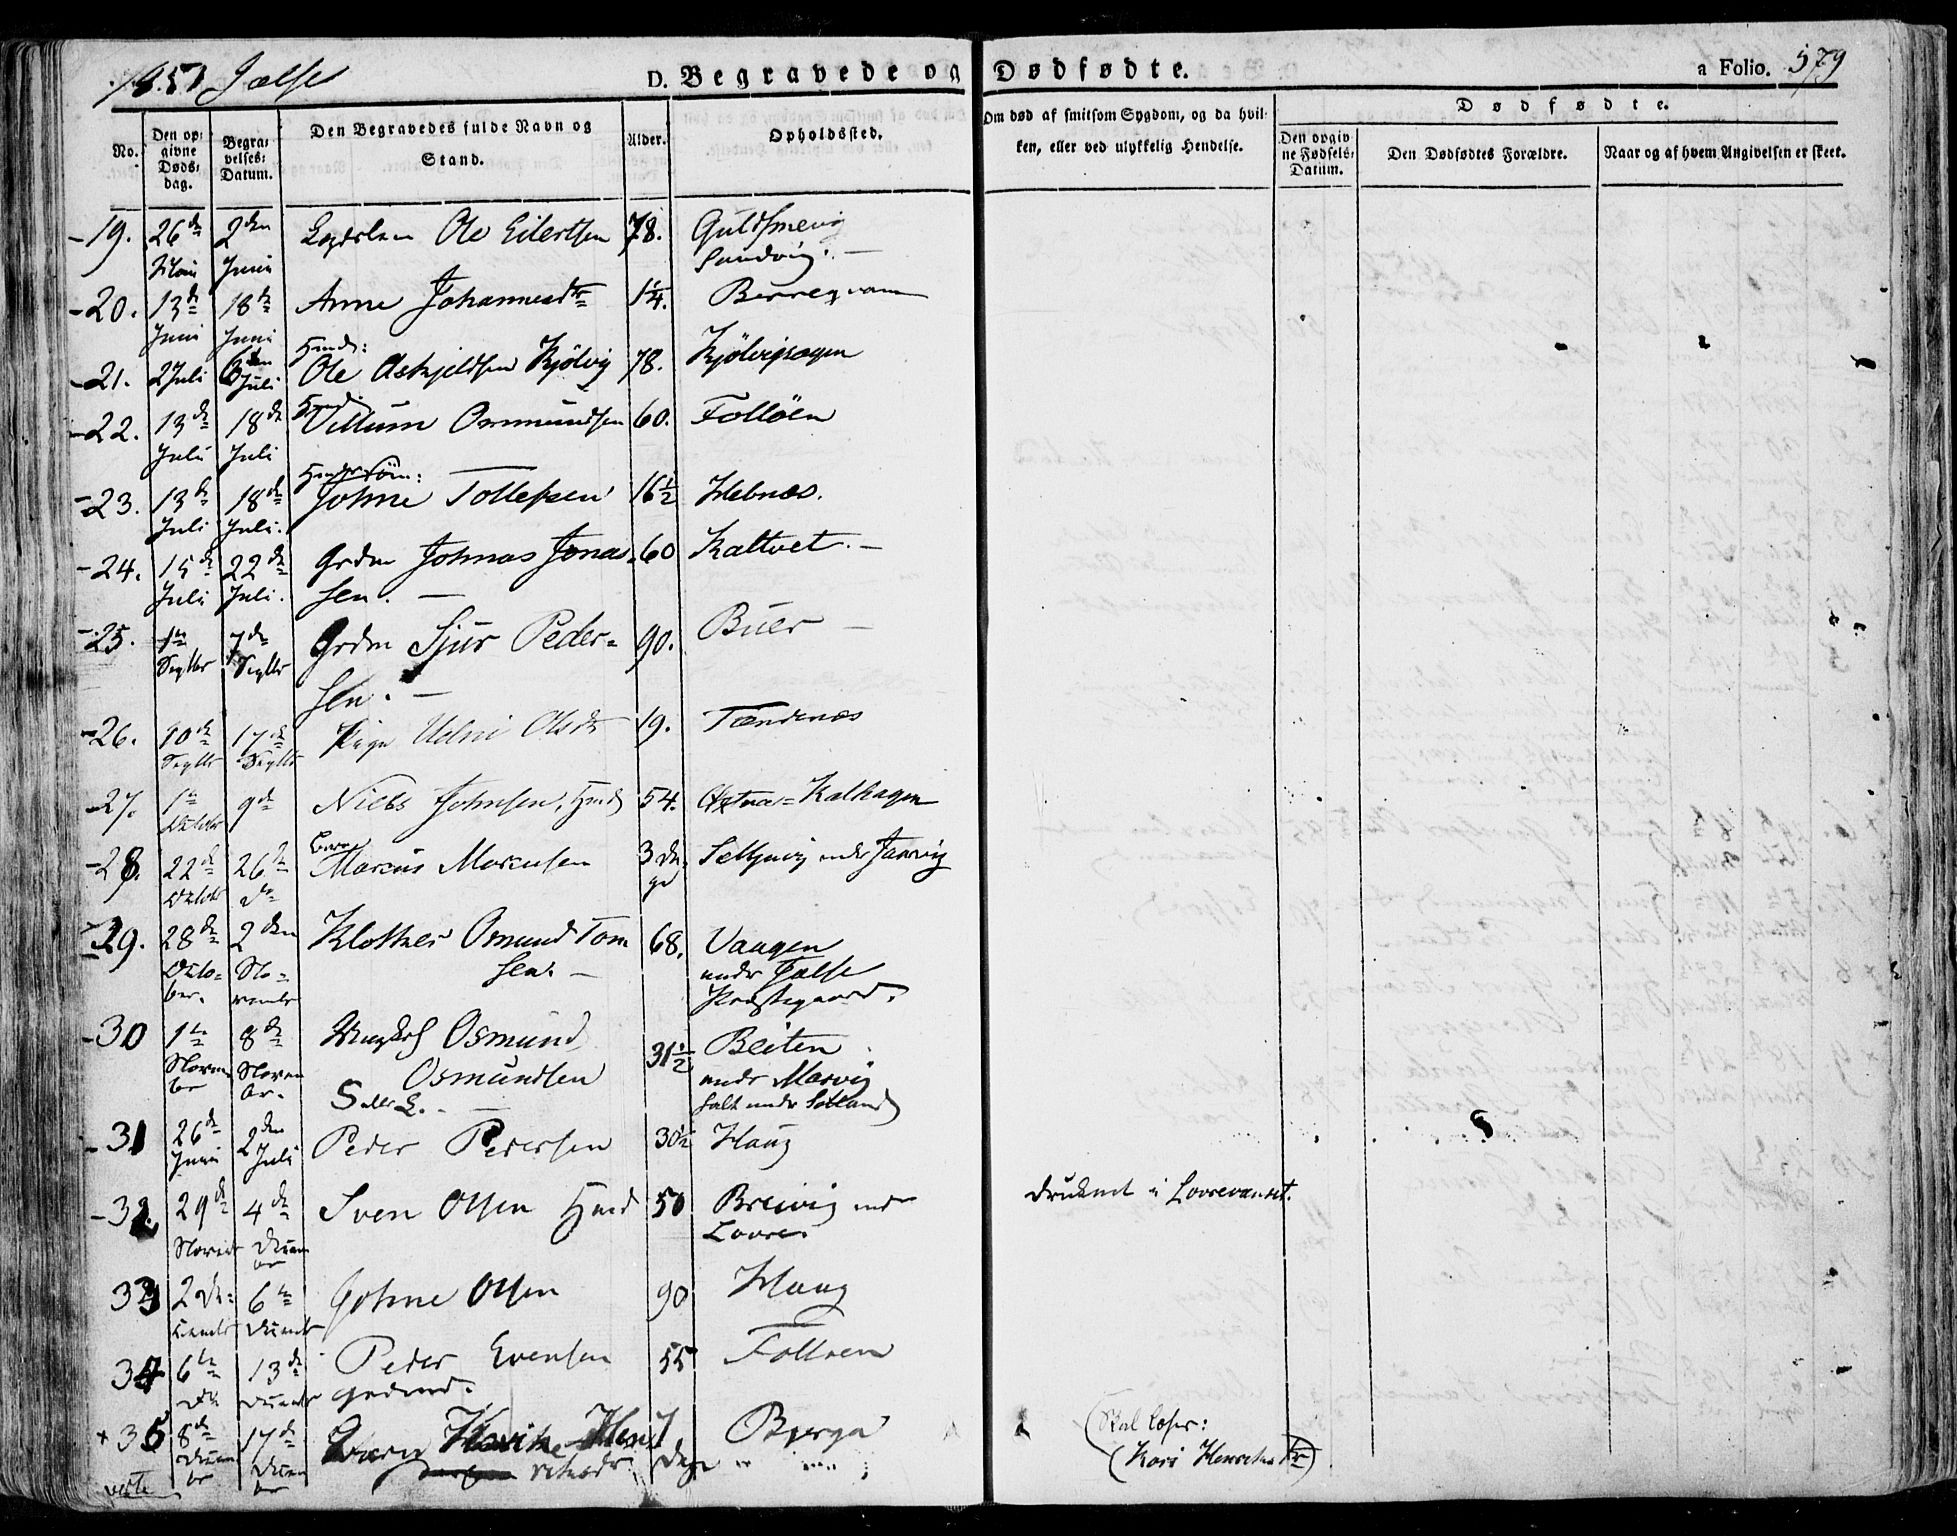 1851 Jælse
D. Begravede og Dødfødte.
a Folio. 579
No.
Den opgivne Dødsdag.
Begravelses-Datum.
Den Begravedes fulde Navn og Stand.
Alder.
Opholdssted.
Om død af smitsom Sygdom, og da hvilken, eller ved ulykkelig Hendelse.
Dødfødte.
Den opgivne Fødsels-Datum.
Den Dødfødtes Forældre.
Naar og af hvem Angivelsen er skeet.
19. 26de Mai 2den Juni Ole Eilertsen 78. Sandvig.
20. 13de Juni 18de Juni Anne Johannesdtr 1¼.
21. 2 Juli 6den Juli Ole Askjeldsen Kjölvig 78.
22. 13de Juli 18de Juli Villum Osmundsen 60. Folløen
23. 13de Juli 18de Juli. Johne Tollefsen 16½ Hebnæs.
24. 15de Juli 22de Juli. Grdm Johnas Jonas-
sen. 60 Kaltvet.
25. 1te Septbr 7de Septbr Grdm Sjur Peder-
sen. 90. Buer
26. 10de Septbr 17de Septbr Pige Olsdtr 19. Tændenæs
27. 1te Octobr 9de Niels Johnsen, Hmd 54. Kalhagen
28. 22de Octobr 26de do Barn Marcus Marcusen 3 Da-
ge under Jasvig
29. 28de Octo-
ber. 2den No-
vembr Klokker Osmund Tom
sen. 68. Vaagen
under Jælse
Præstegaard.
30 1te Novem-
ber 8de Novem
br. Osmund
Osmundsen 31½ Beiten
under Marvig
31 26de Juni 2den Juli Peder Pedersen 30½ Haug
32. 29de Novembr 4de Decem
br Sven Olsen Hmd 50 Breivig und
Lovre. druknet i Lovrevandet.
33 2 De-
cembr 6te Decembr Johne Olsen 90 Haug
34 6te De 13de Decembr Peder Evensen
Grdmd. 55
35 8de Decem
br 17de Decem
br Barn 7 Dage Bjerga
(Skal læses:
(Kari Henriks dtr)
verte